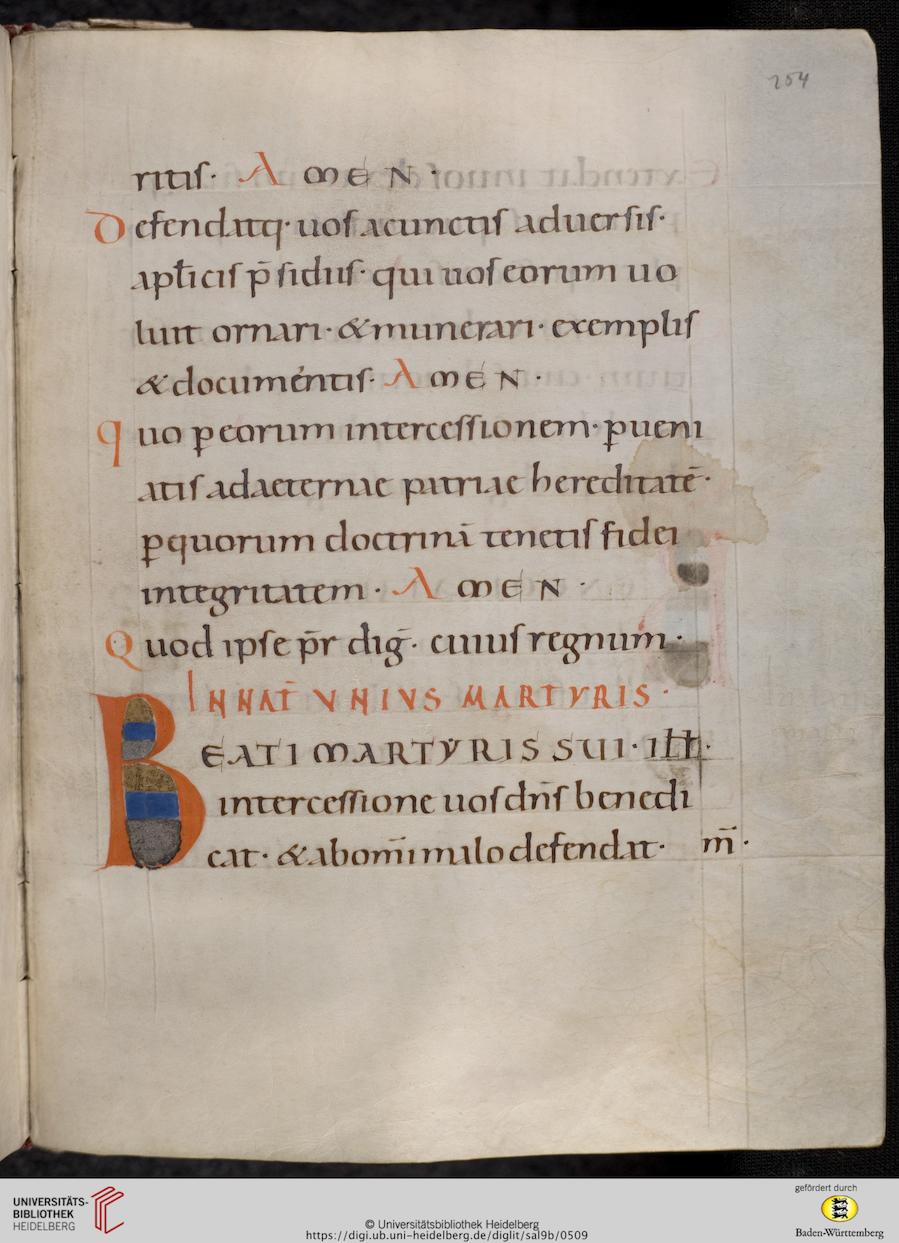 254
ritis· AMEN·
Defendatq· uos acunctis aduersis·
apłicis p̄sidiis· qui uos eorum uo
luit ornari· &munerari· exemplis
&documéntis· AMEN·
quo ꝑeorum intercessionem· ꝑueni
atis adaeternae patriae hereditatē·
ꝑquorum doctrinā tenetis fidei
integritatem· AMEN·
Quod ipse p̄r dig̃· cuius regnum·
IN NAT̄ VNIVS MARTYRIS·
BEATI MARTYRIS SUI· iłł·
intercessione uos dn̄s benedi
cat· &abom̄imalodefendat· m̄·
UNIVERSITÄTS-
BIBLIOTHEK
HEIDELBERG
© Universitätsbibliothek Heidelberg
https://digi.ub.uni-heidelberg.de/diglit/sal9b/0509
gefördert durch
Baden-Württemberg